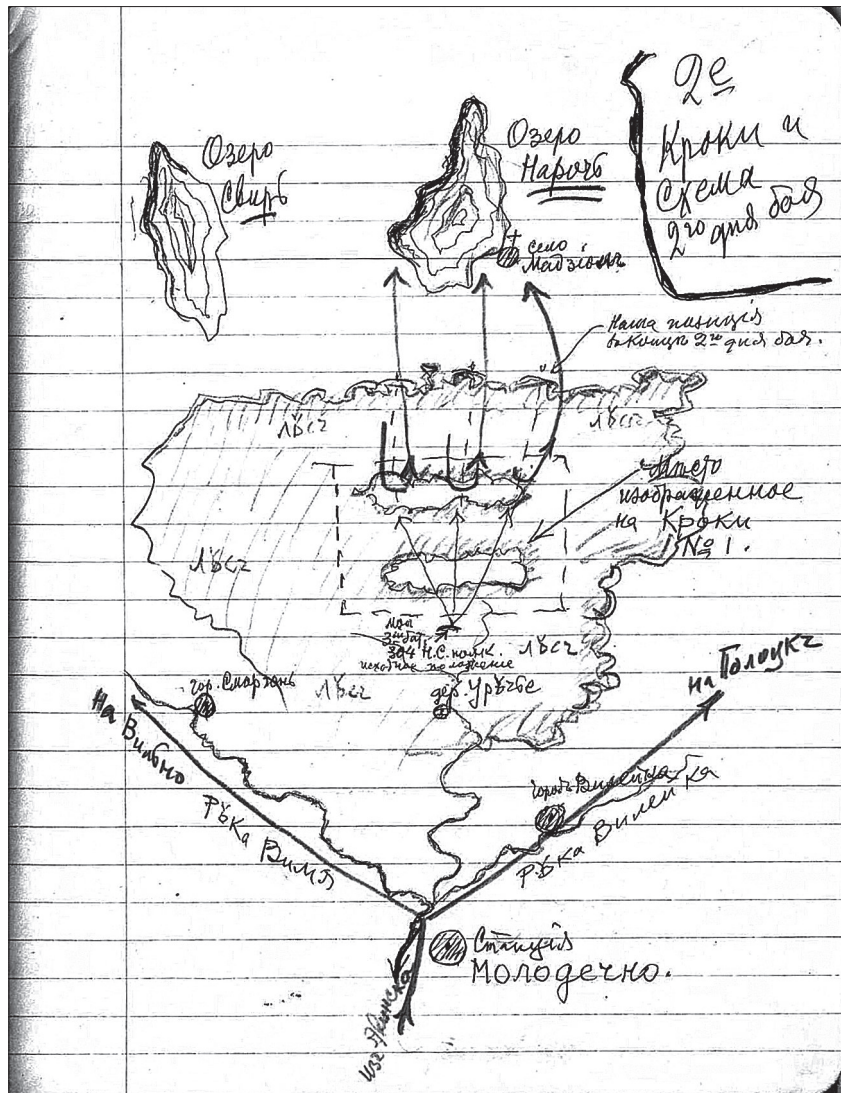 2е
Кроки и
Схема
2го дня боя
Озеро
Свирь
Озеро
Нарочь
село
Мадзіолъ
Наша позиція
въ концѣ 2го дня боя.
Лѣсъ
Лѣсъ
Мѣсто
изображенное
на Кроки
№ 1.
Лѣсъ
мой
3й бат.
304 Н.С. полк.
исходное положение
Лѣсъ
Лѣсъ
гор. Сморгонь
дер. Урѣчбе
на Полоцкъ
На Вильно
Рѣка Вилія
городъ Вилейка
Рѣка Вилейка
Станція
Молодечно.
Изъ Минска